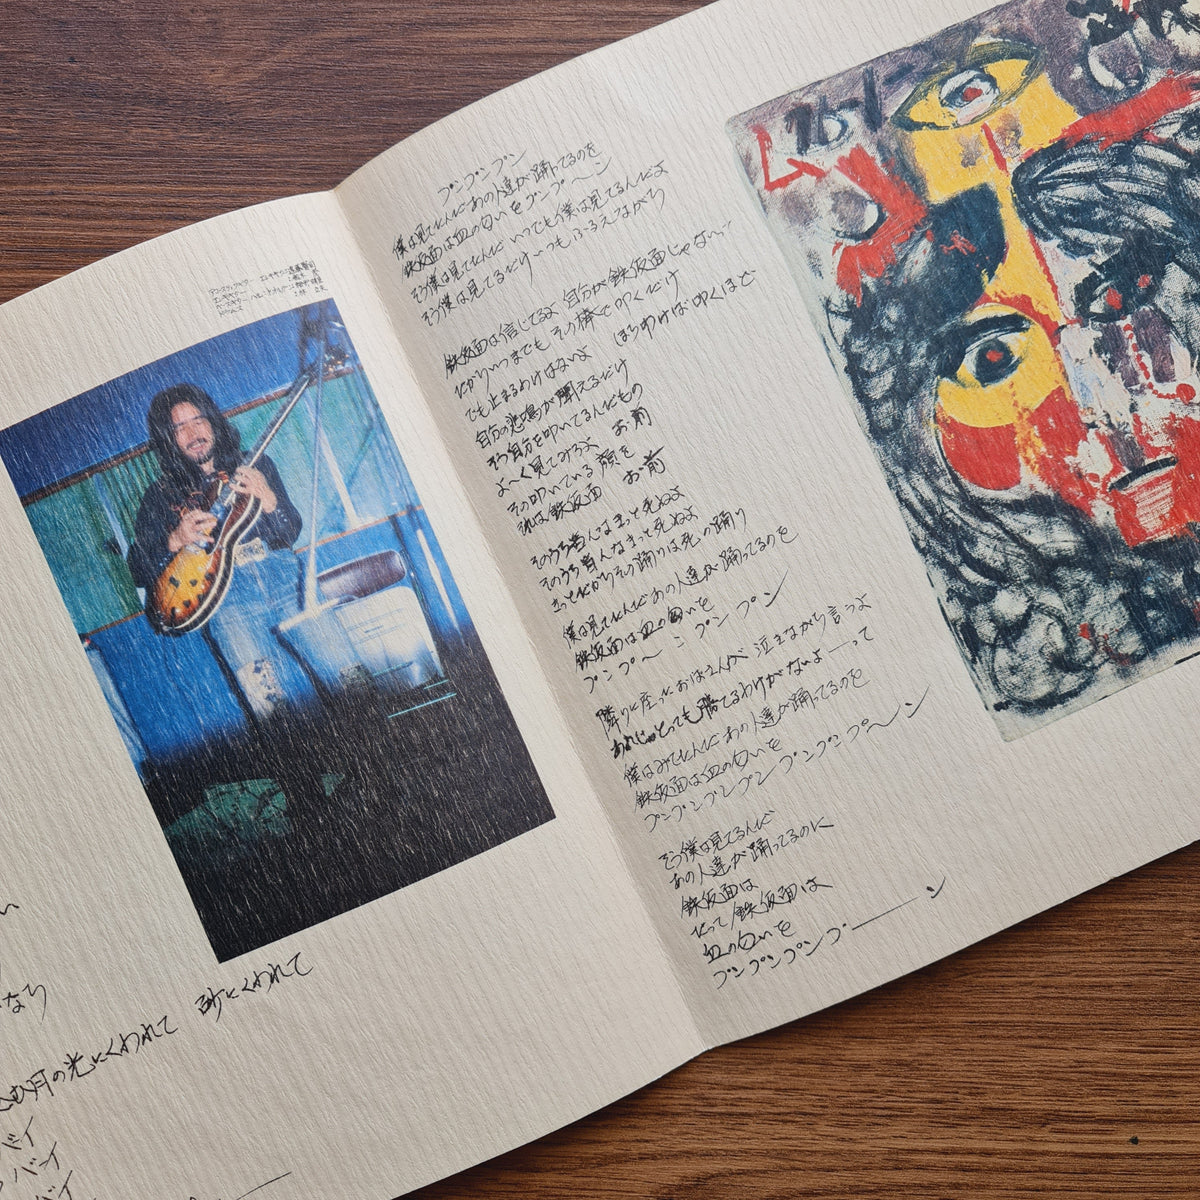 プンプンプン
僕は見てたんだあの人達が踊ってるのを
鉄仮面は血の匂いをプンプ〜ン
そう僕は見てたんだ いつでも僕は見てるんだよ
そう僕は見てるだけ いつもふるえながら
鉄仮面は信じてるよ 自分が鉄仮面じゃない
だからいつまでも その棒で叩くだけ
でも止まるわけはないよ ほらわけは叩くほど
自分の悲鳴が聞えるだけ
そう自分を叩いてるんだもの
よ〜く見てみろよ お前
その叩いている顔を
それは鉄仮面 お前
そのうち皆んなきっと死ぬよ
そのうち皆んなきっと死ぬよ
きっとだからその踊りは死の踊り
僕は見てたんだあの人達が踊ってるのを
鉄仮面は血の匂いを
プンプ〜ンプンプン
隣りに座ったおばさんが 泣きながら言うよ
あれじゃとっても勝てるわけがないよーって
僕はみてたんだあの人達が踊ってるのを
鉄仮面は血の匂いを
プンプンプンプンプンプンプ〜ン
そう僕は見てるんだ
あの人達が踊ってるのに
鉄仮面は
だって鉄仮面は
血の匂いを
プンプンプンプーーーン
月の光にくわれて 砂にくわれて
バイ
バイ
バイ